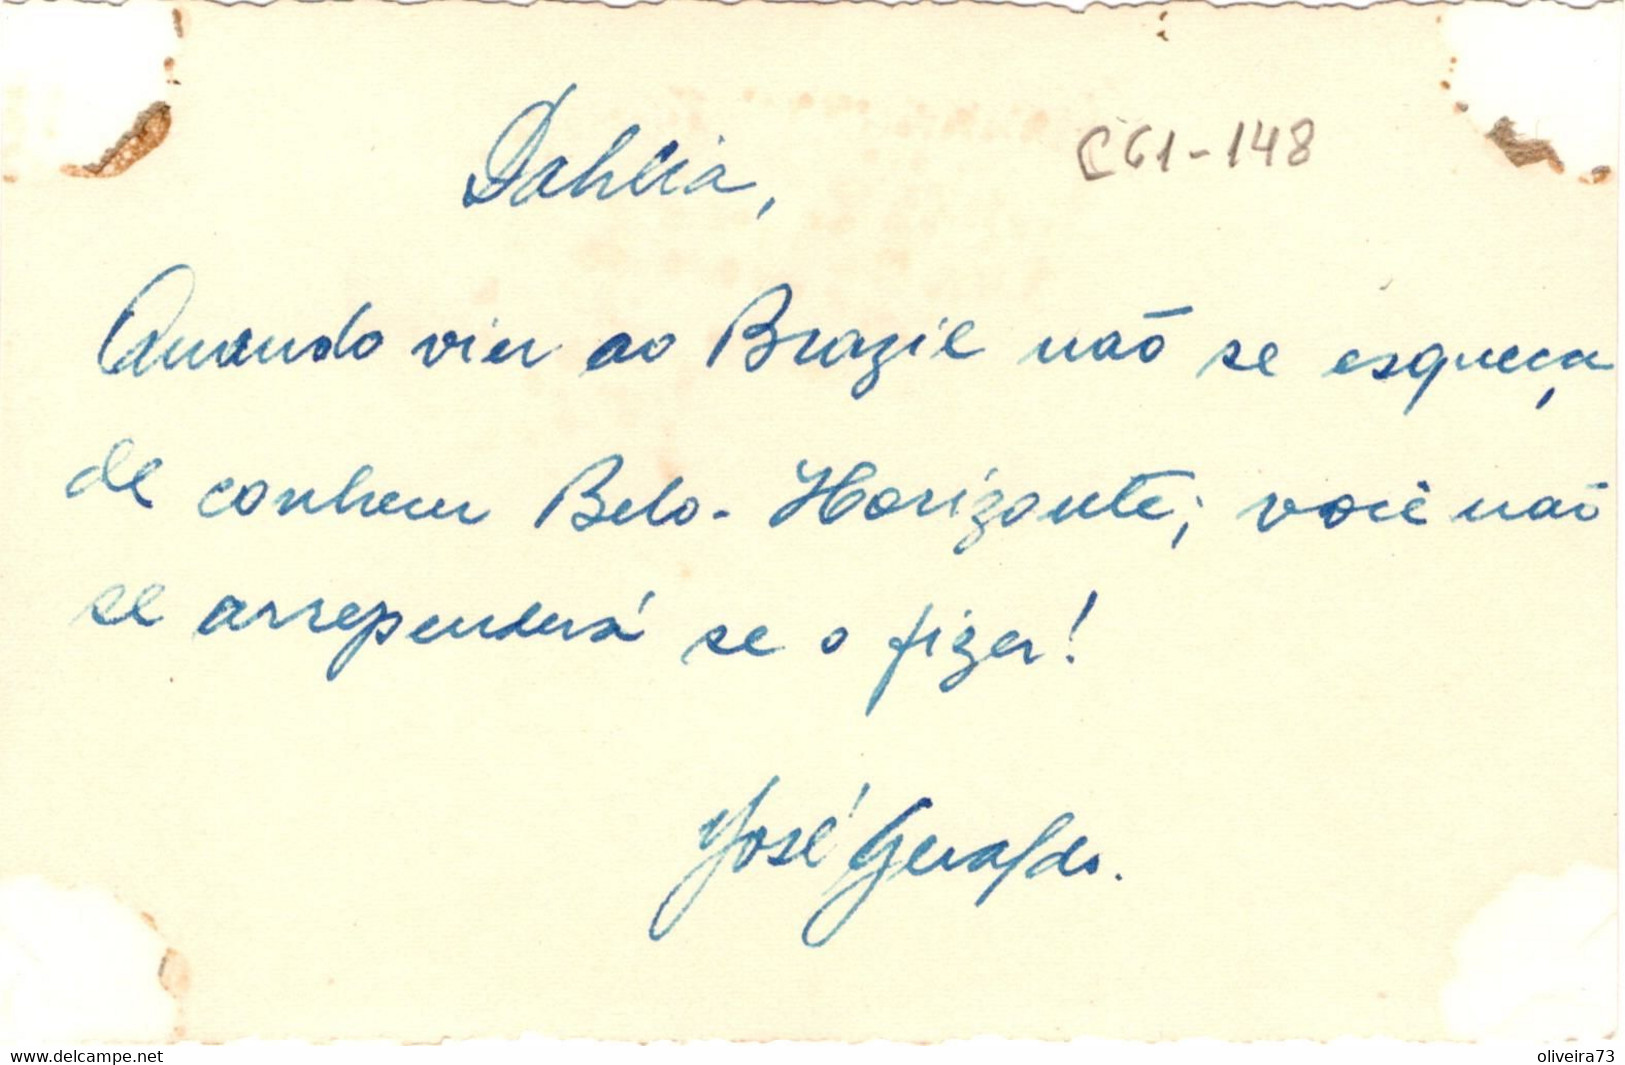 Dahlia,
C61-148
Quando vier ao Brazil não se esqueça
de conhecer Belo-Horizonte; você não
se arrependerá se o fizer!
José Geraldo.
www.delcampe.net
oliveira73